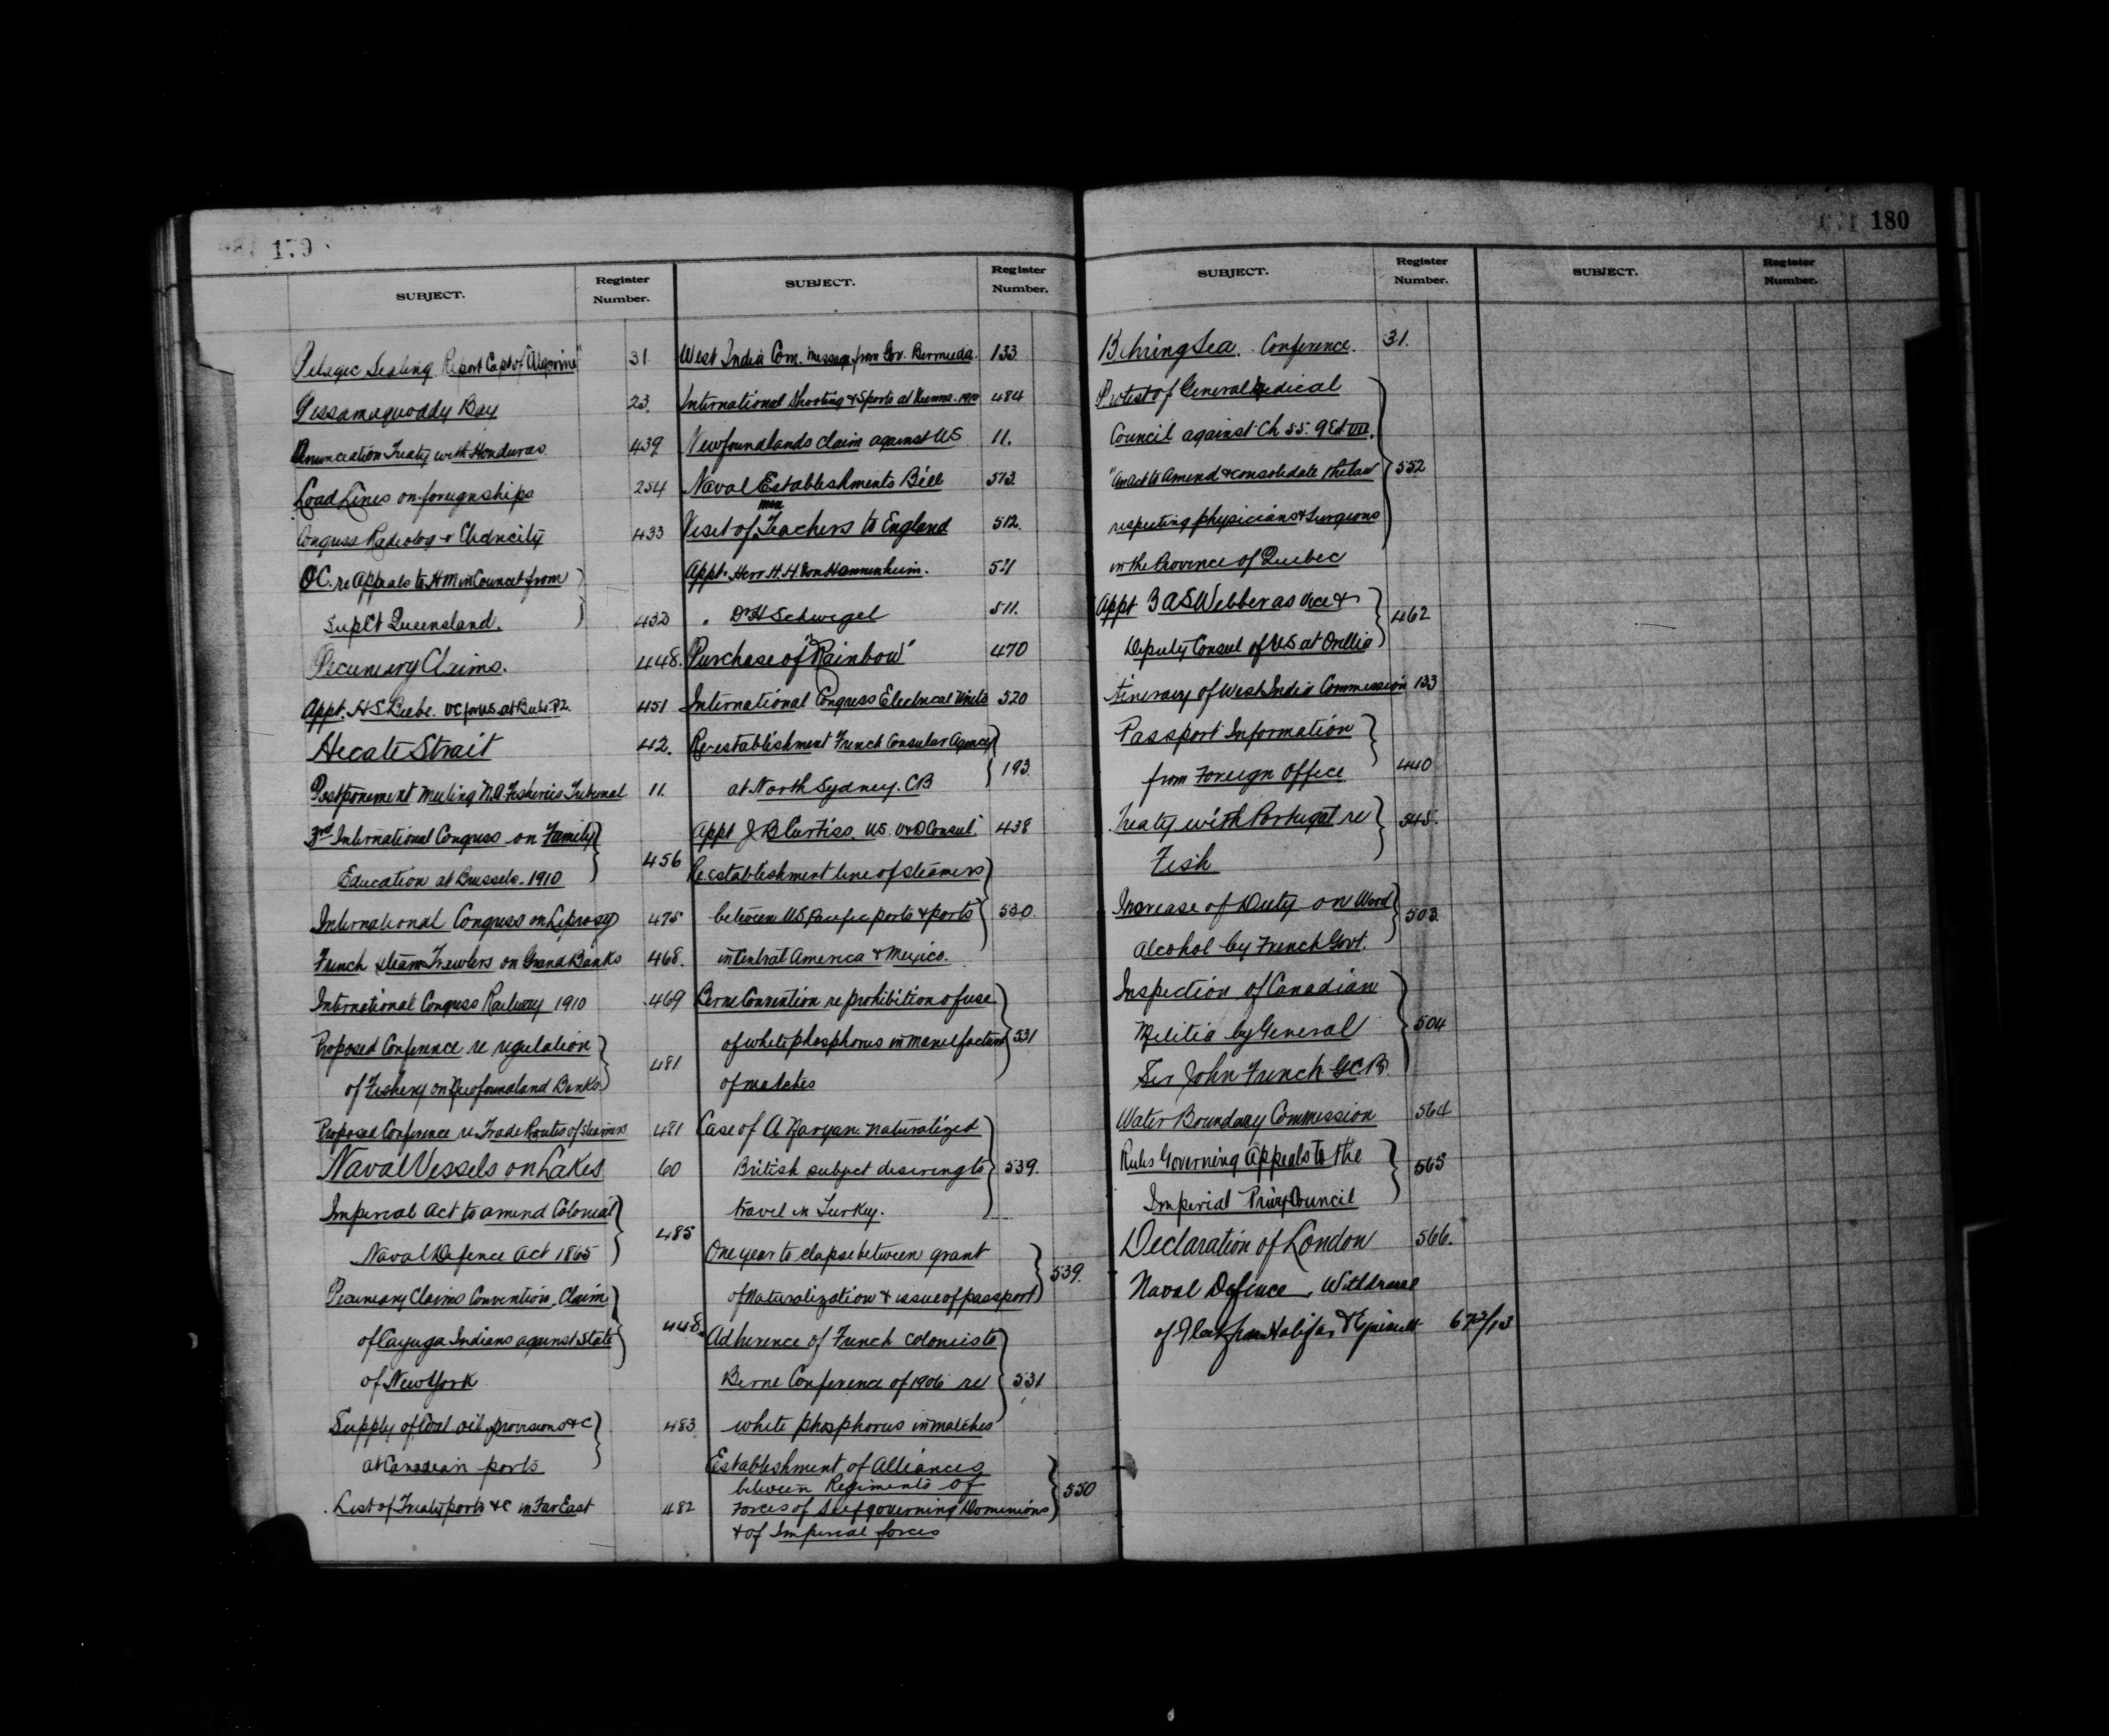 179
SUBJECT.
Register Number.
Pelagic Sealing Report Capt of "Algerine" 31
Passamaquoddy Bay 23.
Annunciation Treaty with Honduras. 439
Load Lines on foreign ships 254
Congress Radiology & Electricity 433
OC. re Appeals to HM in Council from
Sup Ct Queensland. 432
Pecuniary Claims. 448.
Appt. H S Beebe. VC for US at 451
Hecate Strait 42.
Postponement Meeting N.A. Fisheries Tribunal 11.
3rd International Congress on Family
Education at Brussels. 1910 456
International Congress on Leprosy 475
French Steam Trawlers on Grand Banks 468.
International Congress Railway 1910 469
Proposed Conference re regulation
of Fishery on Newfoundland Banks 481
Proposed Conference re Trade Routes of Steamers 481
Naval Vessels on Lakes 60
Imperial Act to amend Colonial
Naval Defence Act 1865 485
Pecuniary Claims Convention. Claim
of Cayuga Indians against State 448.
of New York
Supply of Coal oil provisions &c 483
at Canadian ports
List of Treaty ports &c in Far East 482
SUBJECT.
Register Number.
West India Com. message from Gov. Bermuda. 133
International Shooting & Sports at Vienna. 1910 484
Newfoundlands claim against US 11.
Naval Establishments Bill 513.
men
Visit of Teachers to England 512.
Appt. Herr H. H Von Hannenheim. 511
" Dr H Schwegel 511.
Purchase of "Rainbow" 470
International Congress Electrical Units 520
Re-establishment French Consular Agency
at North Sydney. CB 193.
Appt J B Curtiss. US. V & D Consul. 438
Re establishment line of steamers
between US Pacific ports & ports 530.
in Central America & Mexico.
Berne Convention re prohibition of use
of white phosphorus in manufacture 531
of matches
Case of A Naryan naturalized
British subject desiring to 539.
travel in Turkey.
One year to elapse between grant
of naturalization & issue of passport 539.
Adherence of French Colonies to
Berne Conference of 1906 re 531
white phosphorus in matches
Establishment of Alliances
between Regiments of
Forces of Self governing Dominions 550
& of Imperial forces
180
SUBJECT.
Register Number.
Behring Sea. Conference. 31.
Protest of General Medical
Council against Ch 55. 9 Ed VII.
"An Act to Amend & consolidate the law 552
respecting physicians & Surgeons
in the Province of Quebec
Appt B A S Webber as Vice &
Deputy Consul of US at Orillia 462
Itinerary of West India Commission 133
Passport Information
from Foreign Office 440
Treaty with Portugal re 545.
Fish
Increase of Duty on Wood
alcohol by French Govt. 503.
Inspection of Canadian
Militia by General 504
Sir John French GCB.
Water Boundary Commission 564
Rules Governing Appeals to the
Imperial Privy Council 565
Declaration of London 566.
Naval Defence, Withdrawal
of Fleet from Halifax & Esquimalt 672/13
SUBJECT.
Register Number.